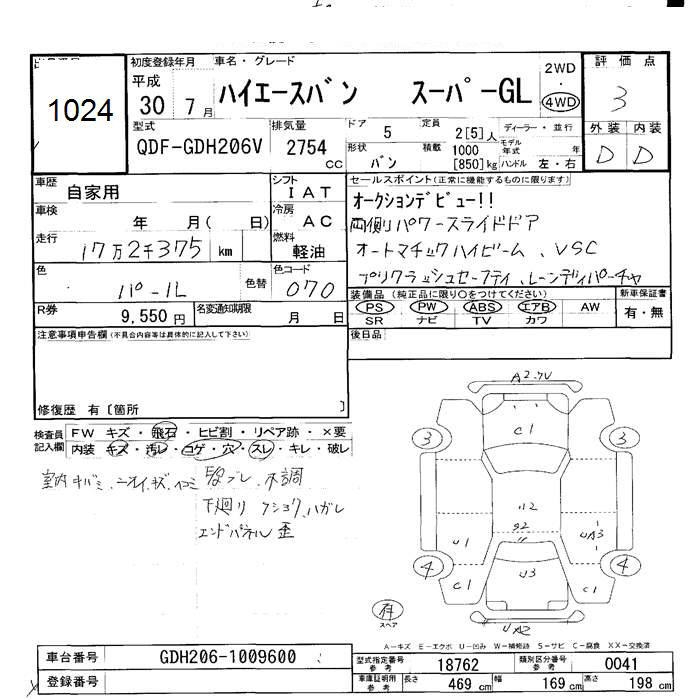 1024
初度登録年月 車名・グレード
平成 30 7月 ハイエースバン スーパーGL 2WD 4WD
評価点
3
外装 内装
D D
型式 QDF-GDH206V
排気量 2754 CC
ドア 5 定員 2[5]人 ディーラー・並行
形状 バン 積載 1000 [850]kg モデル年式 年
ハンドル 左・右
車歴 自家用
シフト IAT
車検 年 月( 日)
冷房 AC
走行 17万2千375 km
燃料 軽油
色 パール 色替
色コード 070
R券 9,550円 名変通知期限 月 日
セールスポイント(正常に機能するものに限ります)
オークションデビュー!!
両側パワースライドドア
オートマチックハイビーム、VSC
プリクラッシュセーフティ、レーンディパーチャ
装備品(純正品に限り○をつけてください) 新車保証書
PS PW ABS エアB AW 有・無
SR ナビ TV カワ
後日品
注意事項申告欄(不具合内容等は具体的に記入して下さい)
修復歴 有〔箇所 〕
検査員記入欄
FW キズ・飛石・ヒビ割・リペア跡・×要
内装・キズ・汚レ・コゲ・穴・スレ・キレ・破レ
不調
下廻り ハガレ
エンドパネル 歪
A2
C1
3 3
U1
U3
4 4
C1 C1
有
スペア
A-キズ E-エクボ U-凹み W-補修跡 S-サビ C-腐食 XX-交換済
車台番号 GDH206-1009600
登録番号
型式指定番号 参考 18762 類別区分番号 参考 0041
車庫証明用 参考 長さ 469 cm 幅 169 cm 高さ 198 cm